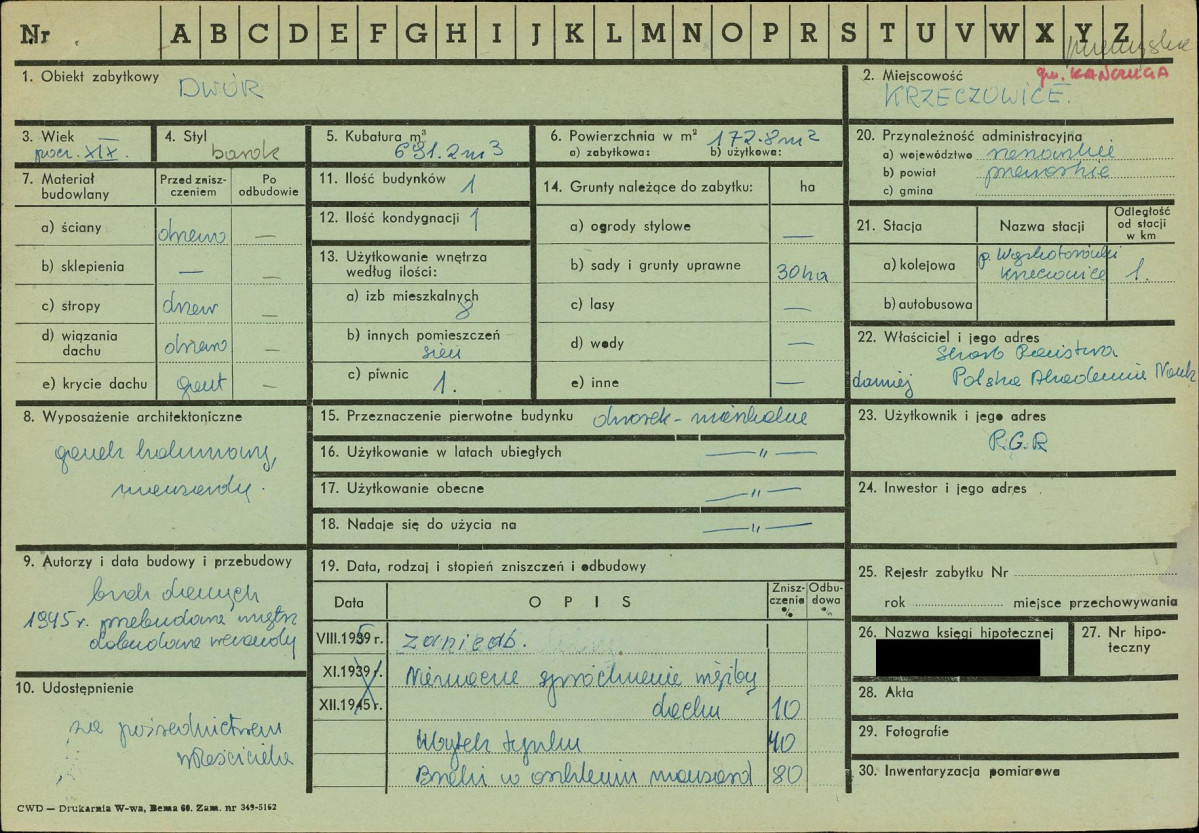 Nr A B C D E F G H I J K L M N O P R S T U V W X Y Z
przemyskie
1. Obiekt zabytkowy
DWÓR
2. Miejscowość
gm. KAŃCZUGA
KRZECZOWICE.
3. Wiek
pocz. XIX.
4. Styl
barok
5. Kubatura m³
631.2 m3
6. Powierzchnia w m² 172.8 m2
a) zabytkowa: b) użytkowa:
20. Przynależność administracyjna
a) województwo rzeszowskie
b) powiat przeworskie
c) gmina
7. Materiał budowlany
Przed znisz-
czeniem
Po
odbudowie
a) ściany drzewo —
b) sklepienia — —
c) stropy drzew —
d) wiązania
dachu drzewo —
e) krycie dachu gont —
11. Ilość budynków 1
12. Ilość kondygnacji 1
13. Użytkowanie wnętrza
według ilości:
a) izb mieszkalnych
8
b) innych pomieszczeń
sień
c) piwnic 1.
14. Grunty należące do zabytku: ha
a) ogrody stylowe —
b) sady i grunty uprawne 30 ha
c) lasy —
d) wody —
e) inne —
21. Stacja Nazwa stacji
Odległość
od stacji
w km
a) kolejowa p.
Krzeczowice 1.
b) autobusowa
22. Właściciel i jego adres
Skarb Państwa
dawniej Polska Akademia Nauk
8. Wyposażenie architektoniczne
ganek kolumnowy,
mansardy.
15. Przeznaczenie pierwotne budynku dworek - mieszkalne
16. Użytkowanie w latach ubiegłych — „ —
17. Użytkowanie obecne — „ —
18. Nadaje się do użycia na — „ —
23. Użytkownik i jego adres
P.G.R
24. Inwestor i jego adres
9. Autorzy i data budowy i przebudowy
brak danych
1945 r. przebudowa wnętrz
dobudowa werandy
19. Data, rodzaj i stopień zniszczeń i odbudowy
Data OPIS
Znisz-
czenia
%
Odbu-
dowa
%
VIII.1939 r. zaniedb.
XI.1939 r. Nieznaczne spróchnienie więźby
XII.1945 r. dachu 10
Ubytek tynku 40
Braki w oszkleniu mansard 80
25. Rejestr zabytku Nr
rok miejsce przechowywania
26. Nazwa księgi hipotecznej
27. Nr hipo-
teczny
28. Akta
29. Fotografie
30. Inwentaryzacja pomiarowa
10. Udostępnienie
za pośrednictwem
właściciela
CWD — Drukarnia W-wa, Bema 60. Zam. nr 349-5162